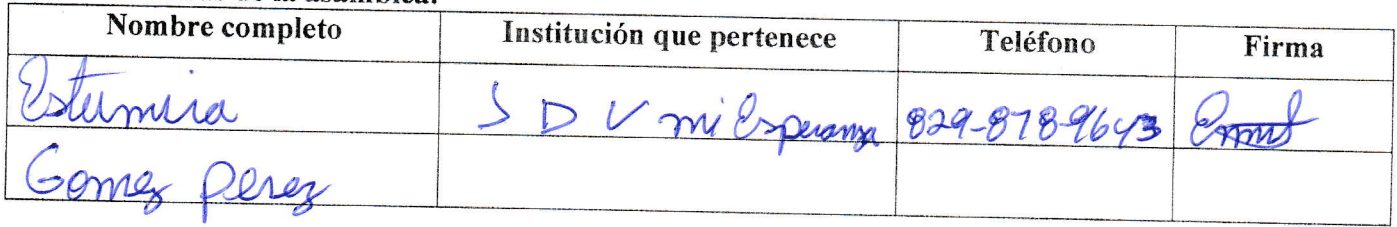 de la asamblea.
Nombre completo Institución que pertenece Teléfono Firma
Estamira J D V mi Esperanza 829-878-9643
Gomez perez